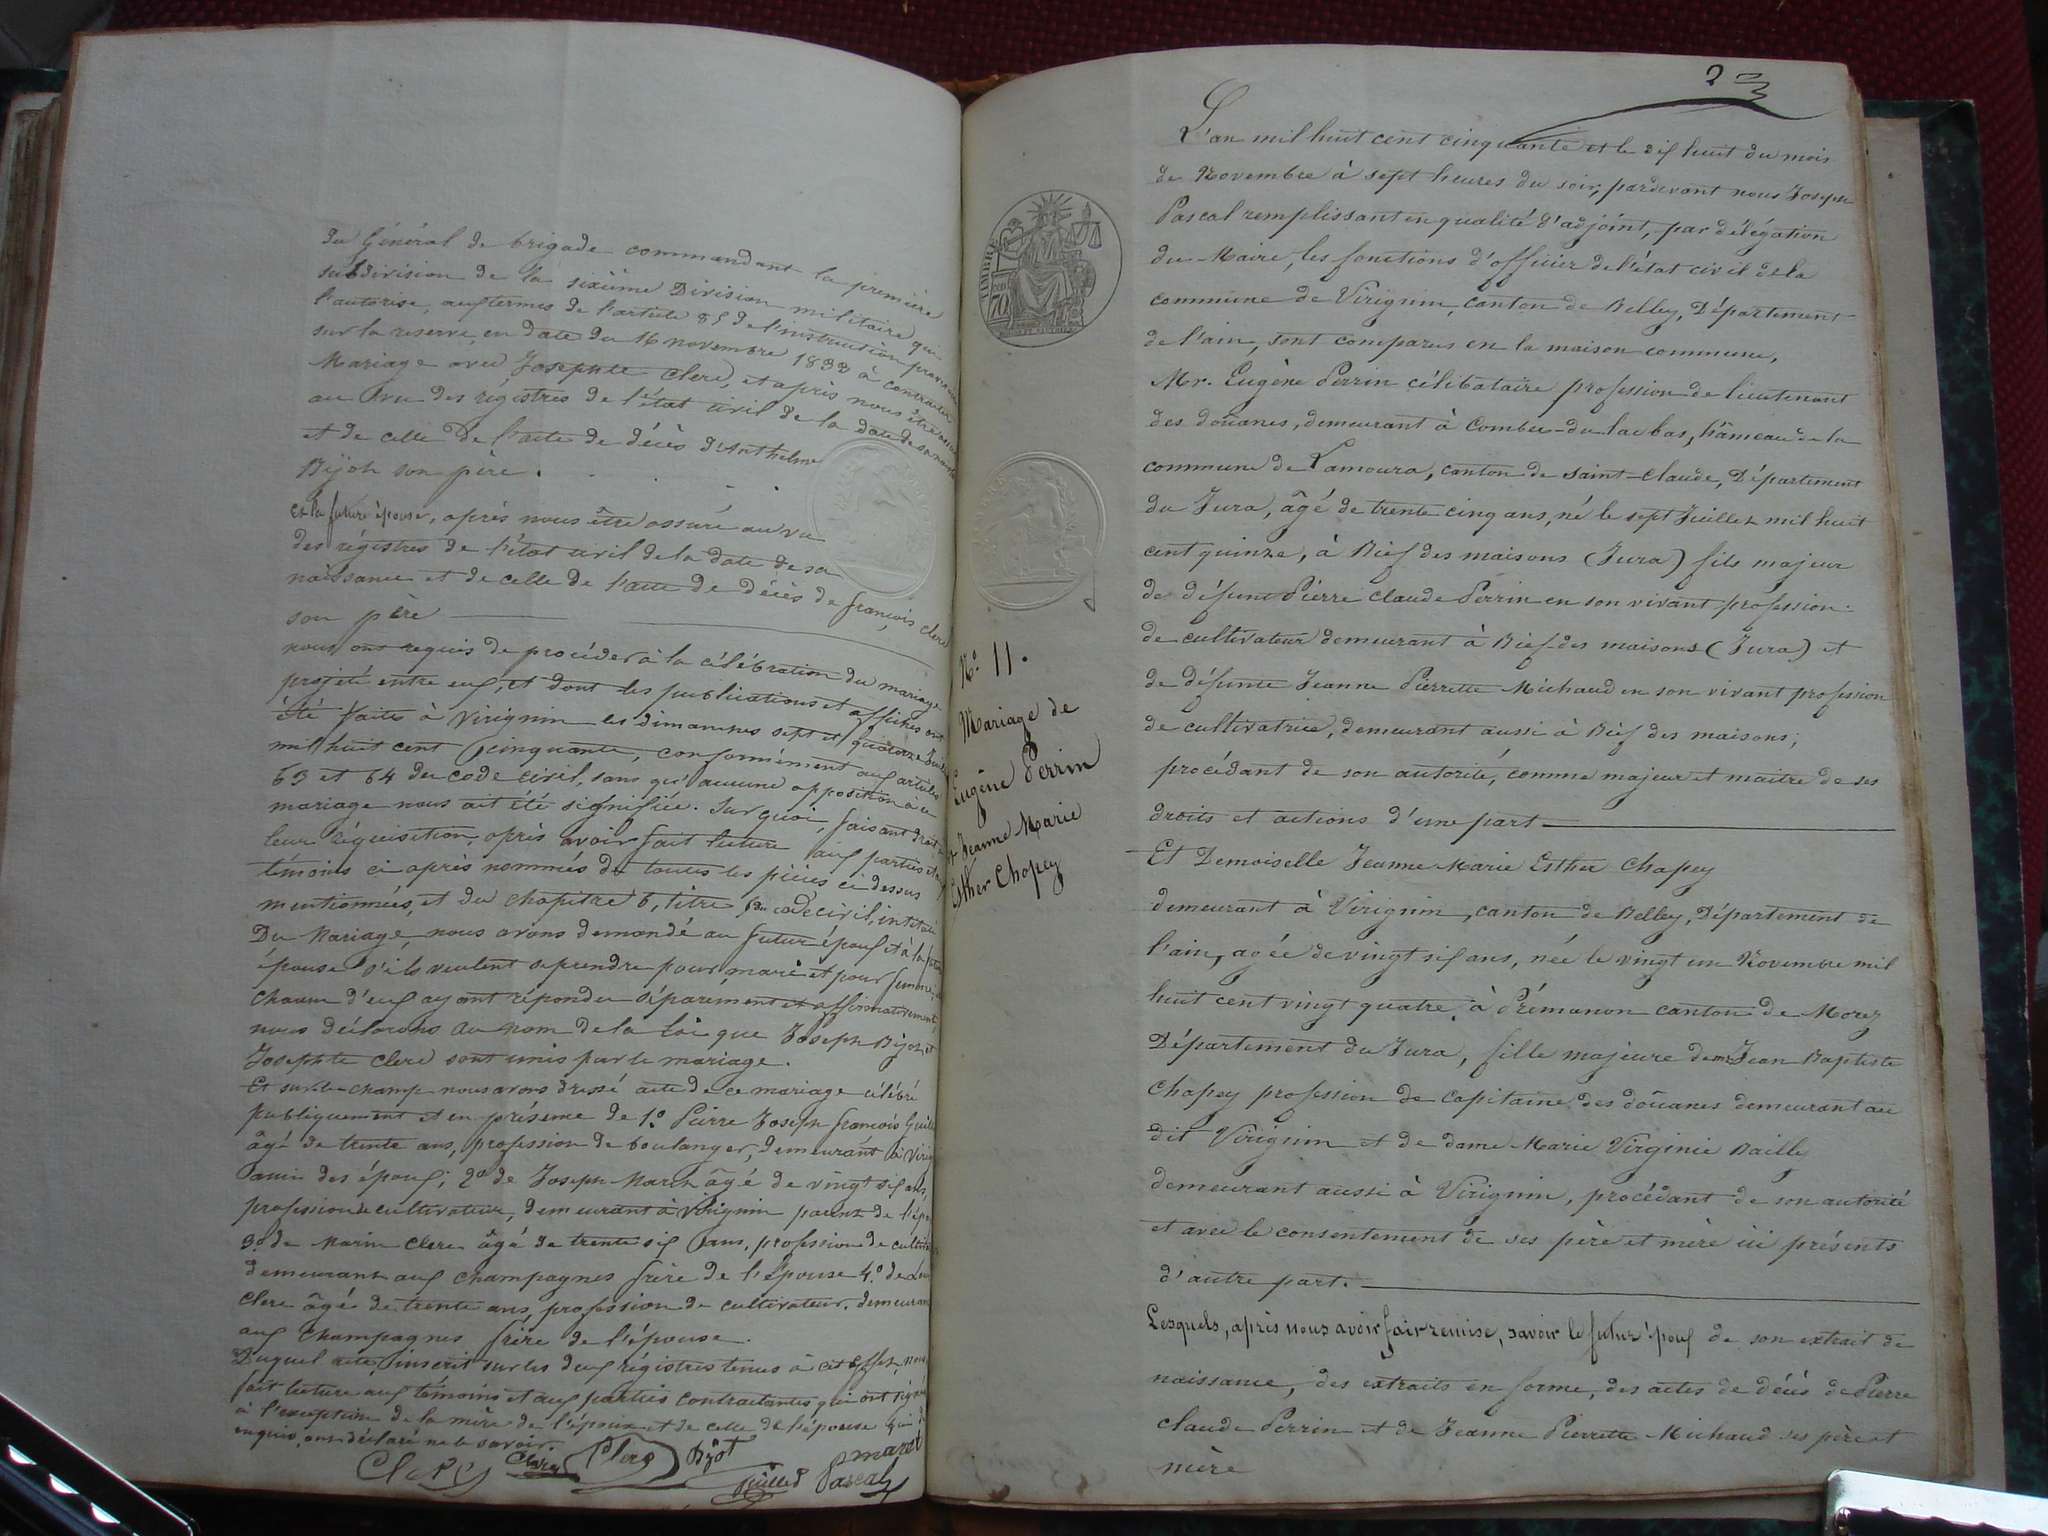 du Général de brigade commandant la première
subdivision de la sixième Division militaire qui
l'autorise, aux termes de l'article 85 de l'instruction
sur la reserve, en date du 16 novembre 1833 à contracter
Mariage avec Josephte Clerc, et après nous être assuré
au vu des régistres de l'état civil de la date de sa
et de celle de l'acte de décès d'Anthelme
Bijot son père.
Et la future épouse, après nous être assuré au vu
des régistres de l'état civil de la date de sa
naissance et de celle de l'acte de décès de françois Clerc
son père
nous ont requis de procéder à la célébration du mariage
projété entre eux, et dont les publications et affiches ont
été faites à Virignin les dimanches sept et quatorze
mil huit cent cinquante, conformément aux articles
63 et 64 du code civil, sans qu'aucune opposition à ce
mariage nous ait été signifiée. Sur quoi, faisant droit à
leur réquisition, après avoir fait lecture aux parties et
témoins ci après nommés de toutes les pièces ci dessus
mentionnées, et du chapitre 6, titre 5 du code civil, intitulé
Du Mariage, nous avons demandé au futur époux et à la future
épouse s'ils veulent se prendre pour mari et pour femme,
chacun d'eux ayant répondu séparément et affirmativement,
nous déclarons au nom de la loi que Joseph Bijot et
Josephte Clerc sont unis par le mariage.
Et sur-le-champ nous avons dressé acte de ce mariage célébré
publiquement et en présence de 1º Pierre Joseph françois
âgé de trente ans, profession de boulanger, demeurant à
ami des époux; 2º de Joseph Maret âgé de vingt six ans,
profession de cultivateur, demeurant à Virignin parent de
3º de Marin Clerc âgé de trente six ans, profession de
demeurant aux Champagnes frère de l'épouse 4º de
Clerc âgé de trente ans, profession de cultivateur, demeurant
aux Champagnes frère de l'épouse.
Duquel acte, inscrit sur les deux régistres tenus à cet effet, nous
fait lecture aux témoins et aux parties contractantes qui ont signé
à l'exception de la mère de l'époux et de celle de l'épouse qui de
enquis, ont déclaré ne le savoir.
Clerc Clerc Clerc Bijot maret
Pascal
23
TIMBRE
70
Nº 11.
Mariage de
Eugène Perrin
et Jeanne Marie
Esther Chapey
L'an mil huit cent cinquante et le dix huit du mois
de Novembre à sept heures du soir, pardevant nous Joseph
Pascal remplissant en qualité d'adjoint, par délégation
du Maire, les fonctions d'officier de l'état civil de la
commune de Virignin, canton de Belley, Département
de l'ain, sont comparus en la maison commune,
Mr. Eugène Perrin célibataire profession de lieutenant
des douanes, demeurant à Combe-du lac bas, hâmeau de la
commune de Lamoura, canton de Saint-Claude, Département
du Jura, âgé de trente cinq ans, né le sept Juillet mil huit
cent quinze, à Bief des maisons (Jura) fils majeur
de défunt Pierre Claude Perrin en son vivant profession
de cultivateur demeurant à Bief-des maisons (Jura) et
de défunte Jeanne Pierrette Michaud en son vivant profession
de cultivatrice, demeurant aussi à Bief des maisons,
procédant de son autorité, comme majeur et maitre de ses
droits et actions d'une part
Et Demoiselle Jeanne Marie Esther Chapey
demeurant à Virignin, canton de Belley, Département de
l'ain, agée de vingt six ans, née le vingt un Novembre mil
huit cent vingt quatre à Prémanon canton de Morez
Département du Jura, fille majeure de mr Jean Baptiste
Chapey profession de capitaine des douanes demeurant au
dit Virignin et de dame Marie Virginie Bailly
demeurant aussi à Virignin, procédant de son autorité
et avec le consentement de ses père et mère ici présents
d'autre part.
Lesquels, après nous avoir fait remise, savoir le futur époux de son extrait de
naissance, des extraits en forme, des actes de décès de Pierre
Claude Perrin et de Jeanne Pierrette Michaud ses père et
mère